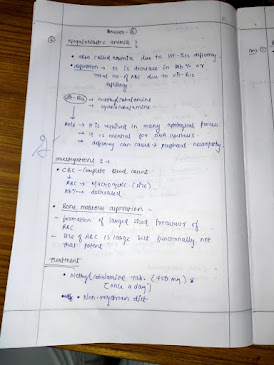 Answer - 6
Megaloblastic anemia :
• also called anemia due to vit-B12 deficiency
• definition → it is decrease in Hb % or
total no of RBC due to vit-B12
deficiency
Vit-B12 → methylcobalamine
→ cyanocobalamine
Role → B12 required in many biological process
→ it is essential for our nerves
→ deficiency can cause peripheral neuropathy
investigations : →
• CBC - complete blood count
↓
RBC → MACROCYTIC (size)
Hb% → decreased
• Bone marrow aspiration -
- formation of larger blood precursor of
RBC
- size of RBC is large but functionally not
that potent
Treatment
• Methylcobalamine tab. (750 mg)
[once a day]
• Non-vegetarian diet